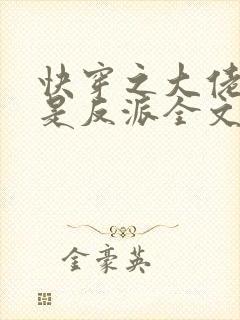 快穿之大佬
是反派全文
金豪英